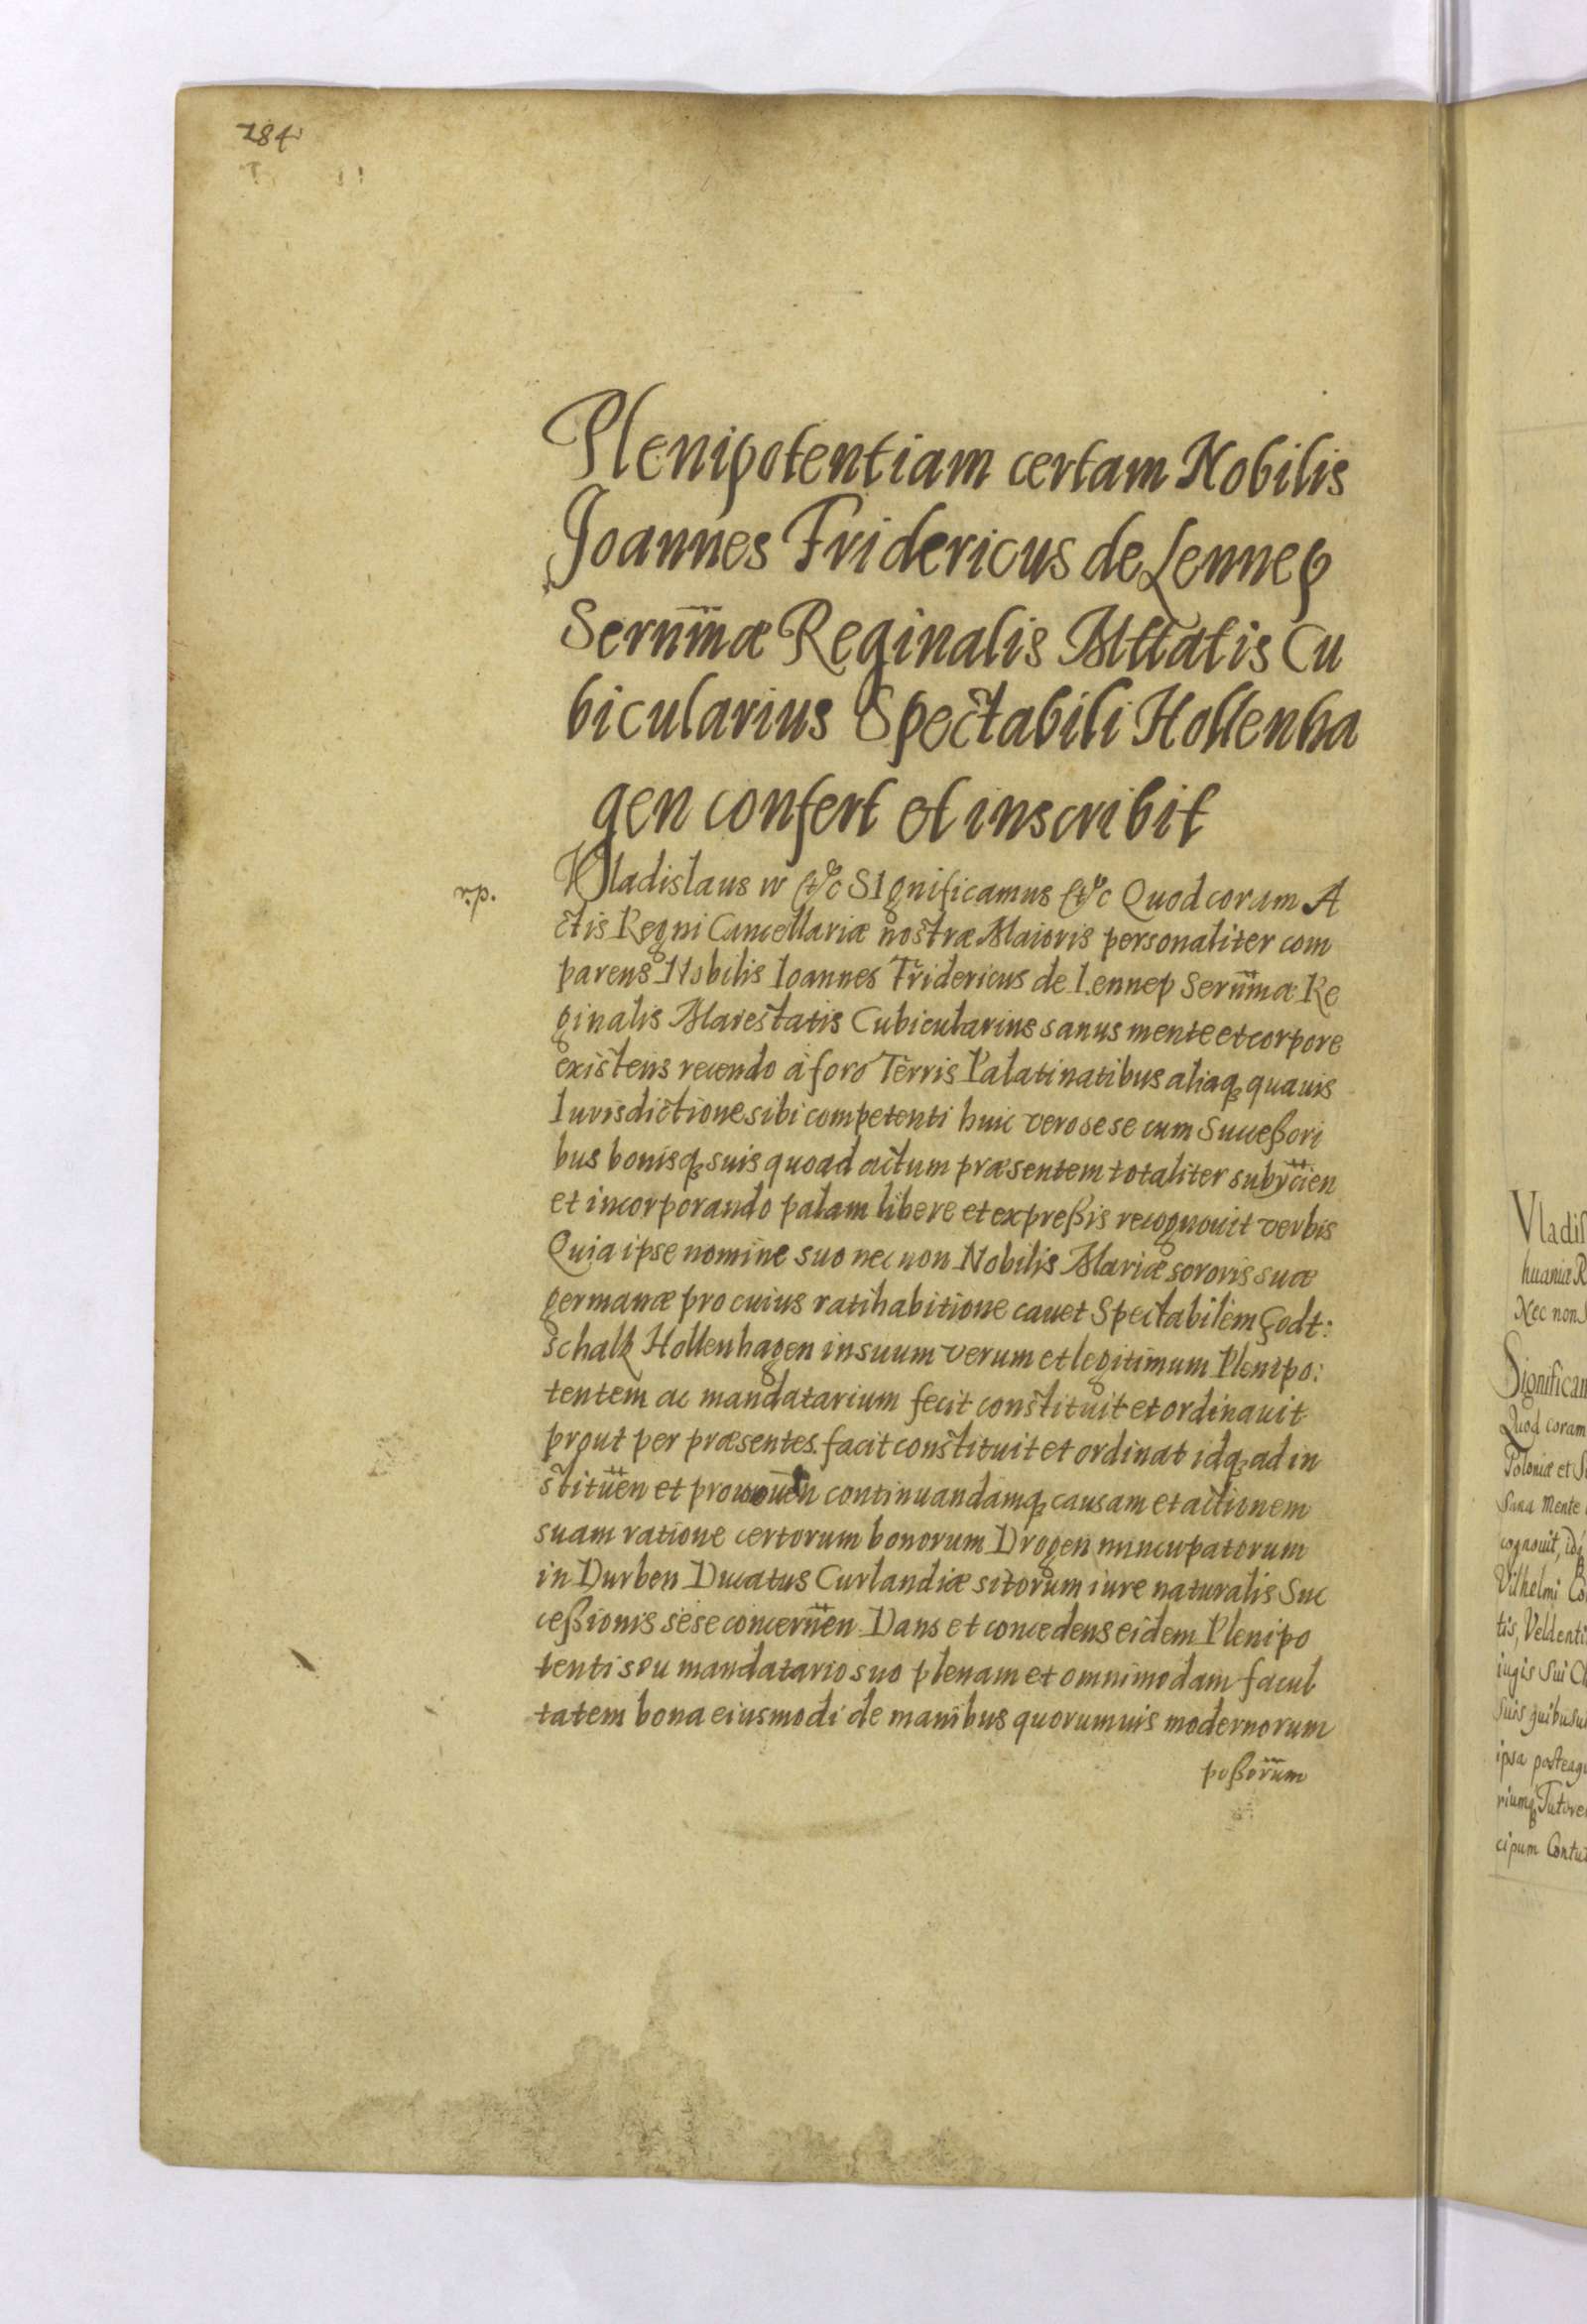 284
Plenipotentiam certam Nobilis
Joannes Fridericus de Lennep
Serñmæ Reginalis Mttatis Cu
bicularius Spectabili Hollenha
gen confert et inscribit
r.p.
Wladislaus IV &c SIgnificamus &c Quod coram A
ctis Regni Cancellariæ nostræ Maioris personaliter com
parens Nobilis Ioannes Fridericus de Lennep Serñmæ Re
ginalis Maiestatis Cubicularius sanus mente et corpore
existens recendo à foro Terris Palatinatibus aliaq quauis
Iurisdictione sibi competenti huic vero sese cum Succeßori
bus bonisq suis quoad actum præsentem totaliter subÿcien
et incorporando palam libere et expreßis recognouit verbis
Quia ipse nomine suo nec non Nobilis Mariæ sororis suæ
germanæ pro cuius ratihabitione cauet Spectabilem Godt:
schalk Hollenhagen in suum verum et legitimum Plenipo:
tentem ac mandatarium fecit constituit et ordinauit
prout per præsentes facit constituit et ordinat idq ad in
stitüen et continuandamq causam et actionem
suam ratione certorum bonorum Drogen nuncupatorum
in Durben Ducatus Curlandiæ sitorum iure naturalis Suc
ceßionis sese concerñen Dans et concedens eidem Plenipo
tenti seu mandatario suo plenam et omnimodam facul
tatem bona eiusmodi de manibus quorumuis modernorum
poßorum
Vladis
huaniæ R
Nec non S
Significam
Quod coram
Poloniæ et S
Sana mente
cognouit, idq
Vilhelmi Co
tis, Veldenti
iugis Sui Ch
Suis quibusu
ipsa posteaq
riumq Tutore
cipum Contut